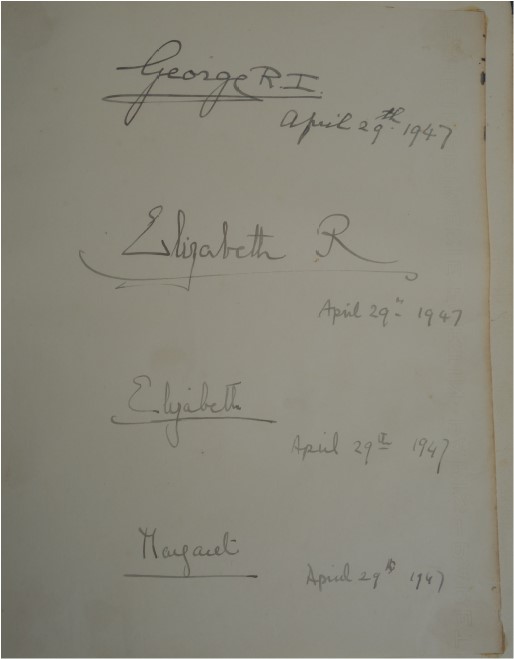 George R.I.
April 29th 1947
Elizabeth R
April 29th 1947
Elizabeth
April 29th 1947
Margaret
April 29th 1947